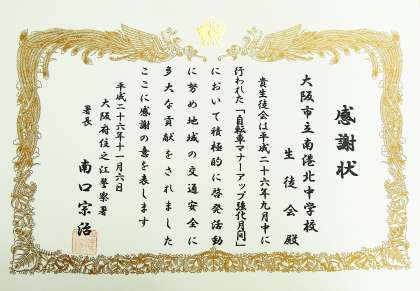 感謝状
大阪市立南港北中学校
生徒会殿
貴生徒会は平成二十六年九月中に
行われた「自転車マナーアップ強化月間」
において積極的に啓発活動
に努め地域の交通安全に
多大な貢献をされました
ここに感謝の意を表します
平成二十六年十一月六日
大阪府住之江警察署
署長 南口宗治